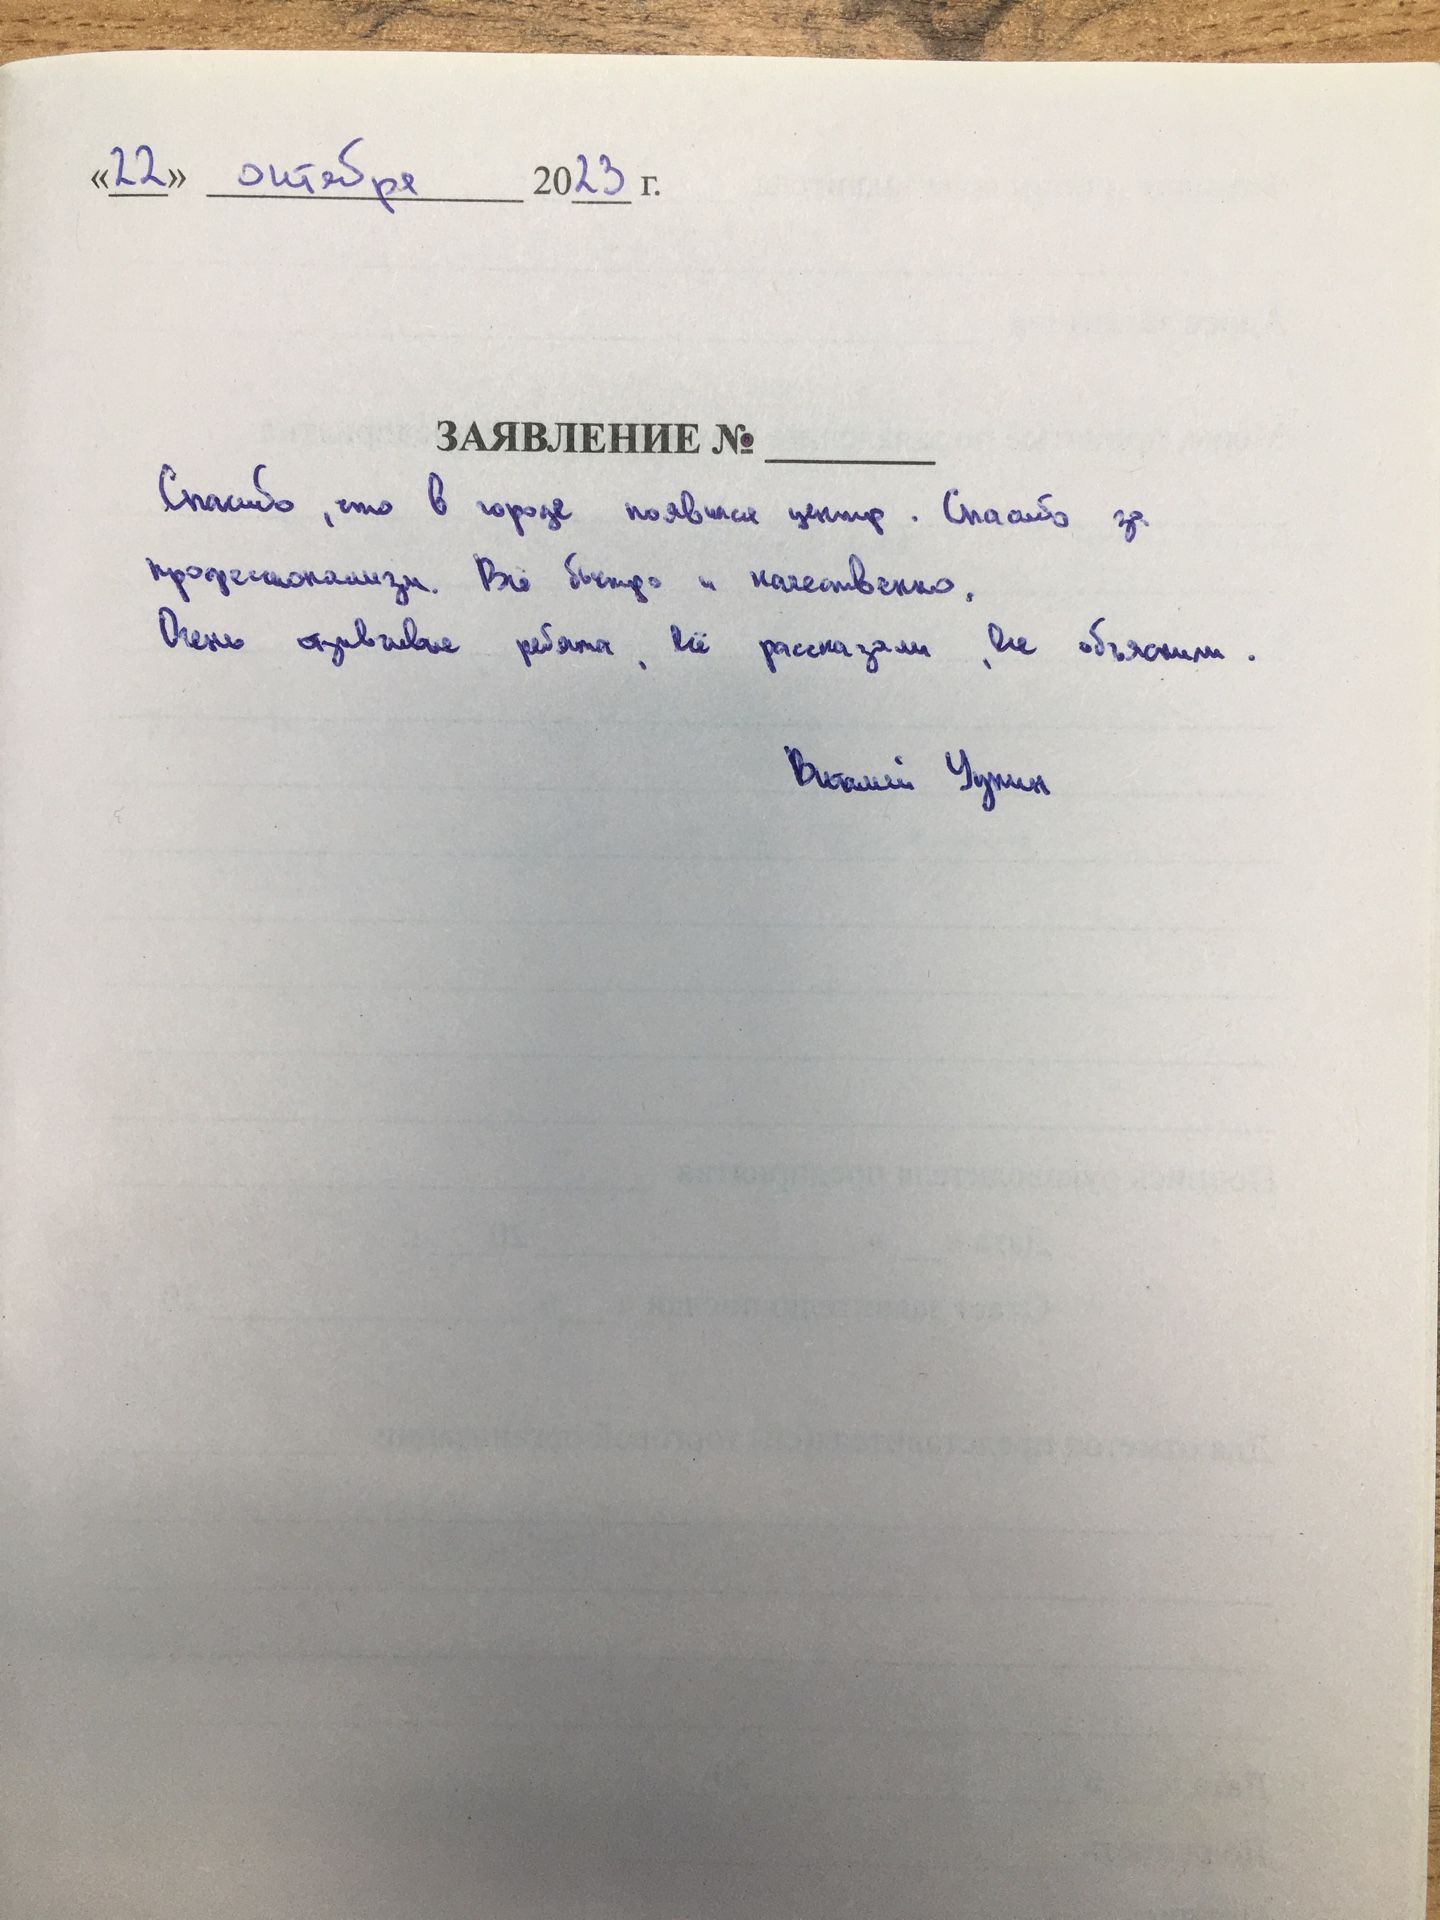 «22» октября 2023 г.
ЗАЯВЛЕНИЕ № ________
Спасибо, что в городе появился центр. Спасибо за
профессионализм. Всё быстро и качественно.
Очень отзывчивые ребята, всё рассказали, все объяснили.
Виталий